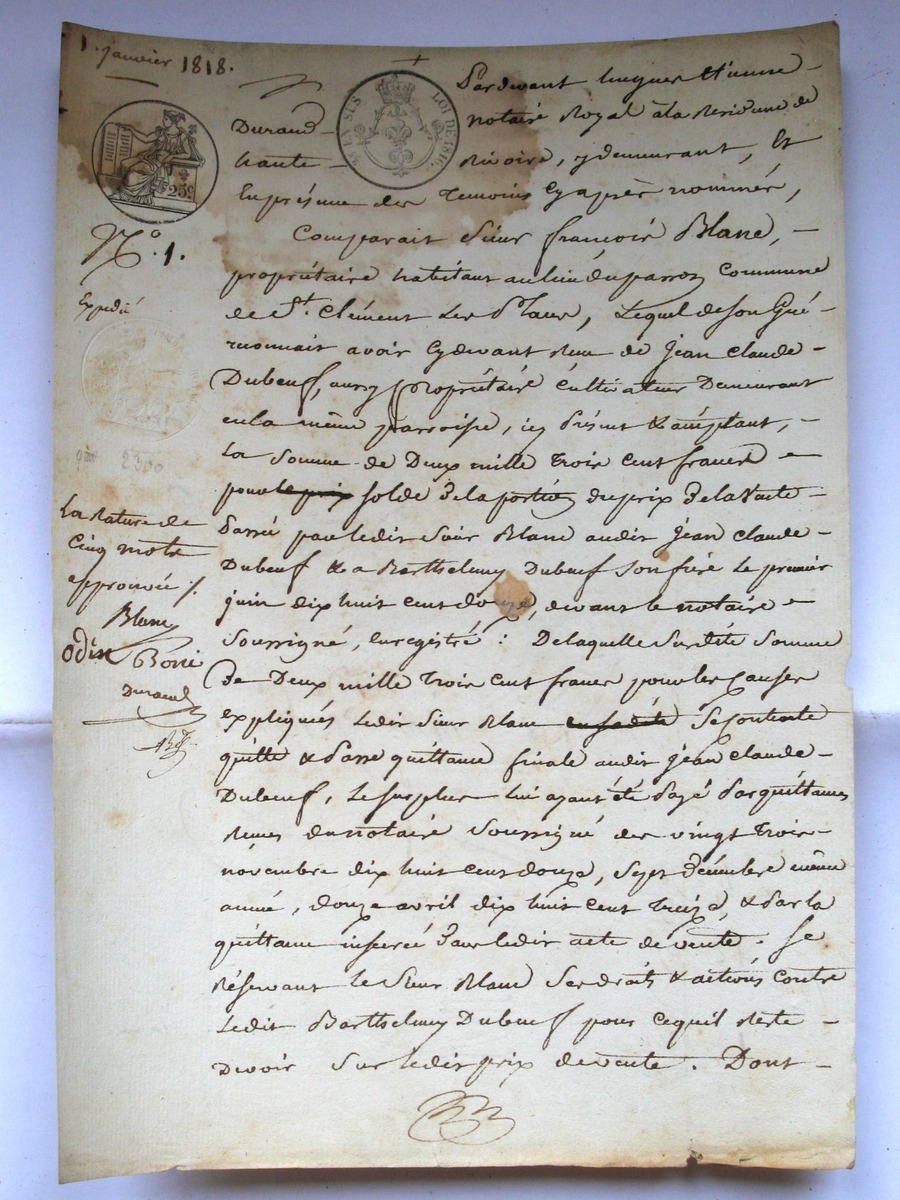 1. janvier 1818.
EN SUS
LOI DE 1816.
25c
N.o 1.
Expédié
2300
La rature de
Cinq mots
approuvée ./.
Blanc
Odin
Durand
Pardevant hugues Etienne
Durand notaire Royal à la Residence de
haute Rivoire, y demeurant, Et
En présence des Temoins Cy après nommés,
Comparait Sieur françois Blanc,
propriétaire habitant au lieu du parron Commune
de St. Clément Les Places, Lequel de Son Gré
reconnait avoir Cydevant Reçu de jean Claude
Dubeuf, aussy propriétaire Cultivateur Demeurant
en la même parroisse, icy présent & acceptant,
La Somme de Deux mille trois cent francs
pour le prix solde de la portion du prix de la Vente
passée par ledit Sieur Blanc audit jean Claude
Dubeuf & a Barthelemy Dubeuf son frère le premier
juin dix huit cent douze, devant le notaire
Soussigné, Enregistré : De laquelle Susdite Somme
De Deux mille trois cent francs pour les Causes
Expliquées ledit Sieur Blanc en sadite Se Contente
quitte & passe quittance finale audit jean Claude
Dubeuf, le surplus lui ayant été payé par quittances
Reçues du notaire Soussigné des vingt trois
novembre dix huit cent douze, Sept Décembre même
année, douze avril dix huit cent treize, & par la
quittance inserée dans ledit acte de vente. Se
Réservant le Sieur Blanc Ses droits & actions contre
Ledit Barthelemy Dubeuf pour ce quil Reste
Devoir Sur ledit prix de vente. Dont